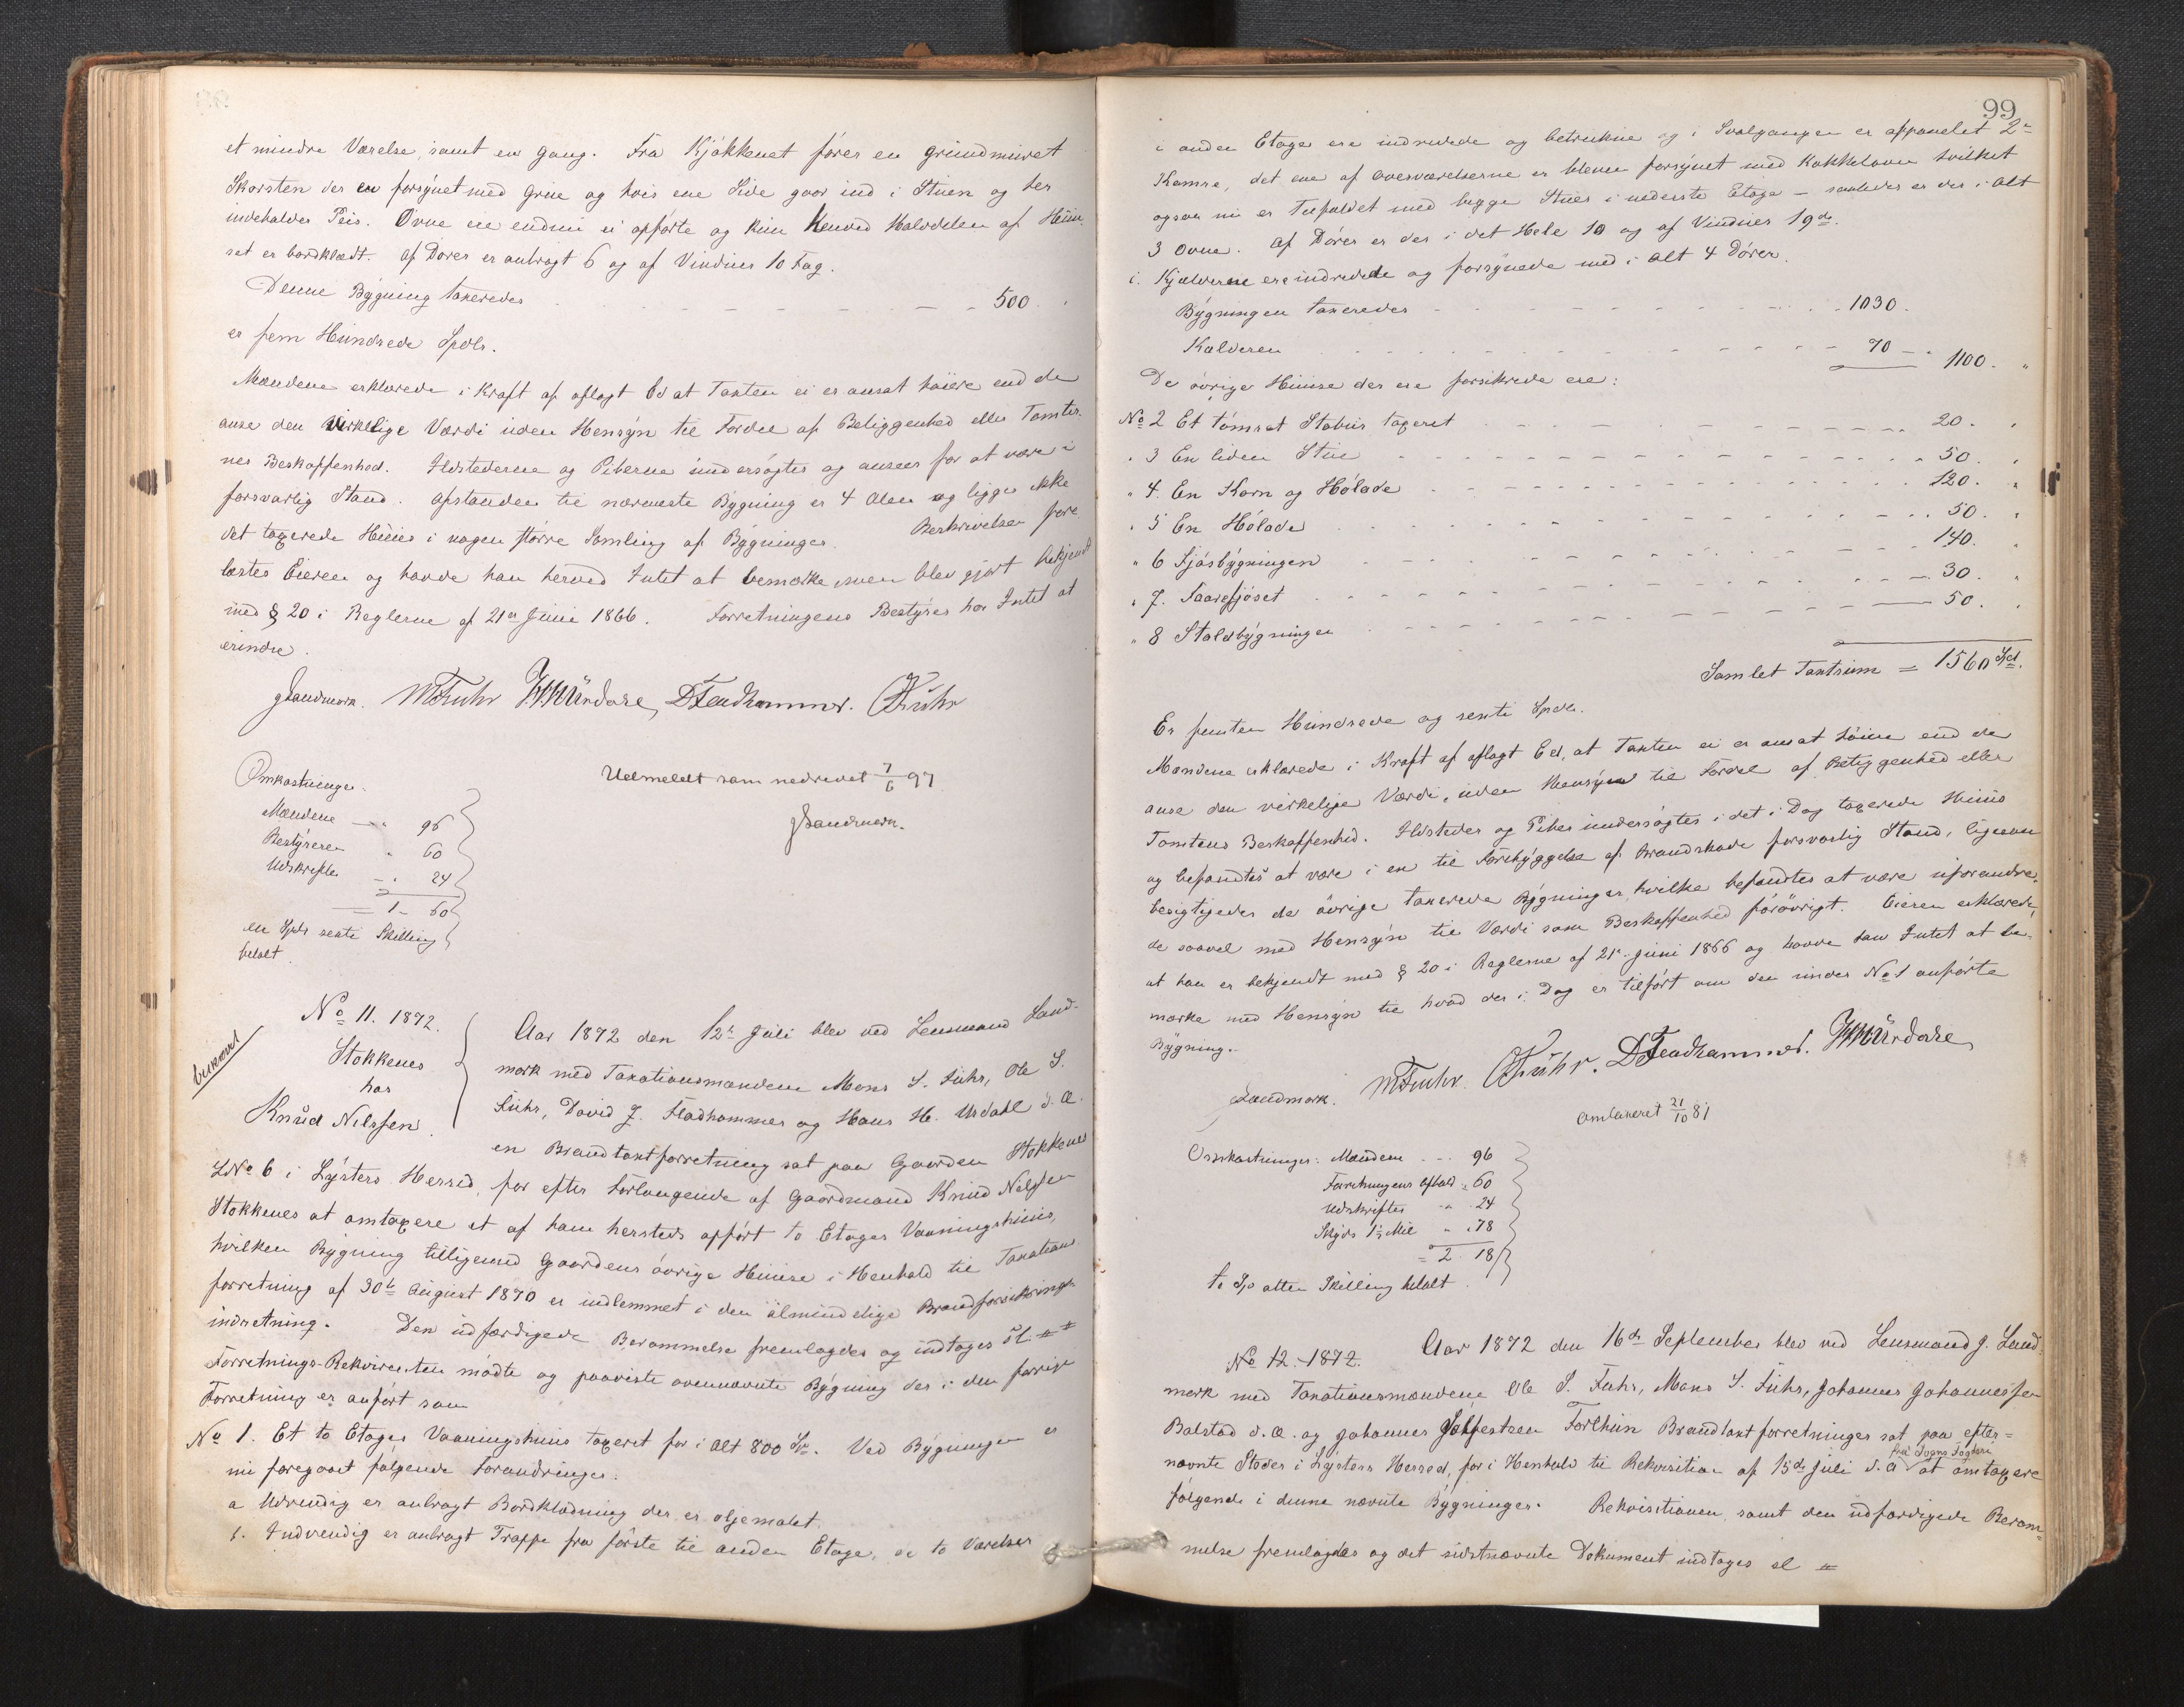 et mindre Værelse, samt en Gang. Fra Kjøkkenet fører en grundmuret
Skorsten der er forsynet med Grue og hvis ene Side gaar ind i Stuen og der
indeholder Peis. Ovne ere endnu ei opførte og kun henved Halvdelen af Huu-
set er bordklædt. Af Dører er anbragt 6 og af Vinduer 10 Fag.
Denne Bygning taxeredes - - - - - - 500.
er fem Hundrede Spdlr.
Mændene erklærede i Kraft af aflagt Ed at Taxten ei er ansat høiere end de
anse den virkelige Værdi uden Hensyn til Fordel af Beliggenhed eller Tomter-
nes Beskaffenhed. Ildstederne og Piberne undersøgtes og ansees for at være i
forsvarlig Stand. Afstanden til nærmeste Bygning er 4 Alen og ligger ikke
det taxerede Huus i nogen større Samling af Bygninger. Beskrivelsen fore-
læstes Eieren og havde han herved Intet at bemærke, men blev gjort bekjendt
med § 20 i Reglerne af 21de Juni 1866. Forretningens Bestyrer har Intet at
erindre.
JSandmork. MFuhr HHUrdahl, DFladhammer. OFuhr
Omkostninger.
Mændene - " 96
Bestyreren " 60
Udskrifter - " 24
= 1 - 60
en Spdr sexti Skilling
betalt.
Udmeldt som nedrevet 7/6 97
JSandmork.
No 11. 1872.
Stokkenes
hos
Knud Nilssen.
beskrevet
Aar 1872 den 12te Juli blev ved Lensmand Sand-
mork med Taxationsmændene Mons S. Fuhr, Ole S.
Fuhr, David J. Fladhammer og Hans H. Urdahl d. Æ.
en Brandtaxtforretning sat paa Gaarden Stokkenes
LNo 6 i Lysters Herred, for efter Forlangende af Gaardmand Knud Nilssen
Stokkenes at omtaxere et af ham hersteds opført to Etages Vaaningshuus,
hvilken Bygning tilligemed Gaardens øvrige Huuse i Henhold til Taxations-
forretning af 30te August 1870 er indlemmet i den almindelige Brandforsikrings-
indretning. Den udfærdigede Berammelse fremlagdes og indtages sl. #
Forretnings-Rekvirenten mødte og paaviste ovennævnte Bygning der i den forrige
Forretning er anført som
No 1. Et to Etages Vaaningshuus taxeret for i Alt 800 Sp. Ved Bygningen er
nu foregaaet følgende Forandringer:
a Udvendig er anbragt Bordklædning der er oljemalet.
b. Indvendig er anbragt Trappe fra første til anden Etage, de to Værelser
99
i anden Etage ere indredede og betrukne og i Svalgangen er afpanelet 2de
Kamre, det ene af Overværelserne er bleven forsynet med Kakkelovn hvilket
ogsaa nu er Tilfældet med begge Stuer i nederste Etage – saaledes er der i Alt
3 Ovne. Af Dører er der i det Hele 10 og af Vinduer 19 do.
c. Kjælderne ere indredede og forsynede med i Alt 4 Dører.
Bygningen taxeredes - - - - - - 1030.
Kælderen - - - - - - 70 – 1100. "
De øvrige Huuse der ere forsikrede ere:
No 2 Et tømret Stabur taxeret - - - - - 20. "
" 3 En liden Stue - - - - - 50. "
" 4. En Korn og Hølade - - - - - 120. "
" 5 En Hølade - - - - - 50. "
" 6 Fjøsbygningen - - - - - 140. "
" 7. Faarefjøset - - - - - 30. "
" 8 Staldbygningen - - - - - 50. "
Samlet Taxtsum = 1560 Spd.
Er femten Hundrede og sexti Spdr.
Mændene erklærede i Kraft af aflagt Ed, at Taxten ei er ansat høiere end de
anse den virkelige Værdi, uden Hensyn til Fordel af Beliggenhed eller
Tomtens Beskaffenhed. Ildsteder og Piber undersøgtes i det i Dag taxerede Huus
og befandtes at være i en til Forebyggelse af Brandskade forsvarlig Stand, ligesom
besigtigedes de øvrige taxerede Bygninger, hvilke befandtes at være uforandre-
de saavel med Hensyn til Værdi som Beskaffenhed forøvrigt. Eieren erklærede,
at han er bekjendt med § 20 i Reglerne af 21de Juni 1866 og havde han Intet at be-
mærke med Hensyn til hvad der i Dag er tilført om den under No 1 anførte
Bygning.
JSandmork. MFuhr. OFuhr. DFladhammer. HHUrdahl
Omtaxeret 21/10 81
Omkostninger: Mændene - - 96
Forretningens Afhold " 60
Udskrifter " 24
Skyds 1½ Mil " 78
= 2. 18
to Sp atten Skilling betalt.
No 12. 1872.
Aar 1872 den 16de September blev ved Lensmand J. Sand-
mork med Taxationsmændene Ole S. Fuhr, Mons S. Fuhr, Johannes Johannessen
Bolstad d. Æ. og Johannes Sjøfestsen Forthun Brandtaxtforretninger sat paa efter-
nævnte Steder i Lysters Herred, for i Henhold til Rekvisition af 15de Juli d. A fra Sogns Fogderi at omtaxere
følgende i denne nævnte Bygninger. Rekvisitionen, samt den udfærdigede Beram-
melse fremlagdes og det sidstnævnte Dokument indtages sl #